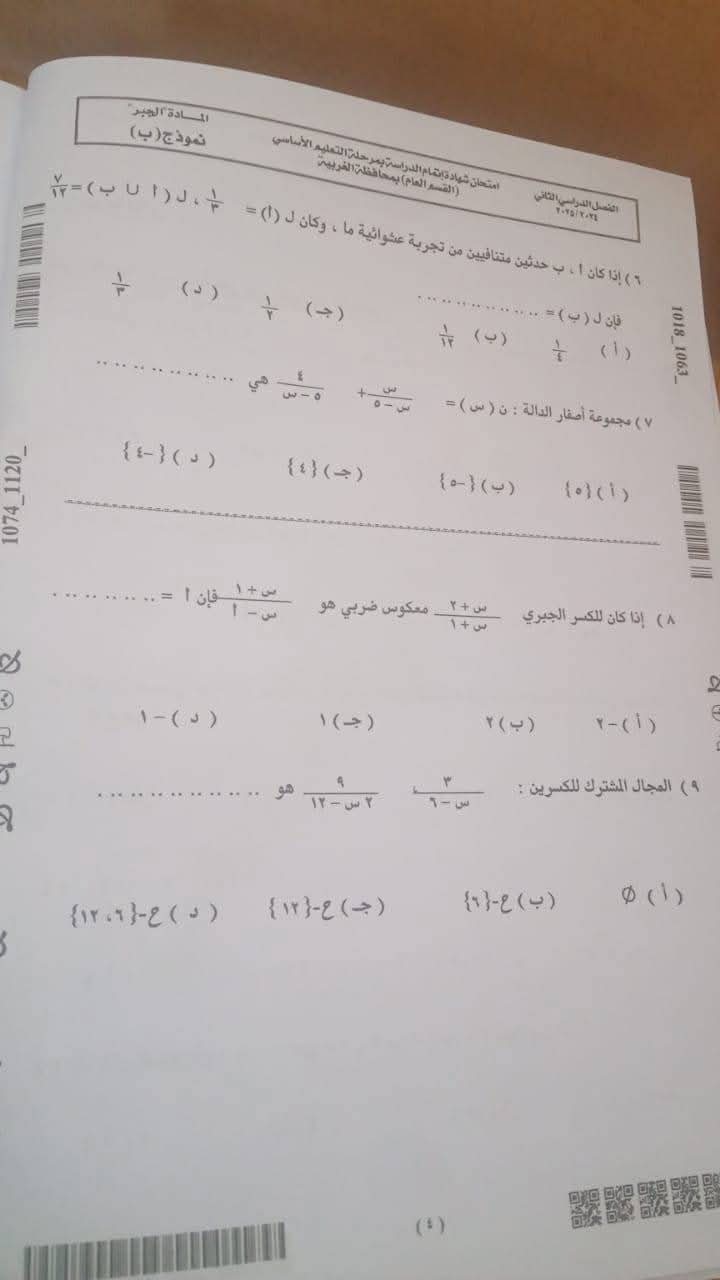 الفصل الدراسي الثاني
٢٠٢٥/٢٠٢٤
امتحان شهادة إتمام الدراسة بمرحلة التعليم الأساسي
(القسم العام) بمحافظة الغربية
المـــادة "الجبر"
نموذج (ب)
٦) إذا كان أ ، ب حدثين متنافيين من تجربة عشوائية ما ، وكان ل (أ) = ١/٣ ، ل (أ ∪ ب) = ٧/١٢
فإن ل (ب) = ..................
(أ) ١/٤ (ب) ١/١٢ (جـ) ١/٢ (د) ١/٣
٧) مجموعة أصفار الدالة : ن (س) = س/(س-٥) + ٤/(٥-س) هي ..................
(أ) {٥} (ب) {-٥} (جـ) {٤} (د) {-٤}
٨) إذا كان للكسر الجبري (س+٢)/(س+١) معكوس ضربي هو (س+١)/(س-أ) فإن أ = ............
(أ) -٢ (ب) ٢ (جـ) ١ (د) -١
٩) المجال المشترك للكسرين : ٣/(س-٦) ، ٩/(٢س-١٢) هو ..................
(أ) Ø (ب) ح-{٦} (جـ) ح-{١٢} (د) ح-{٦، ١٢}
(٤)
1018_1063_
1074_1120_